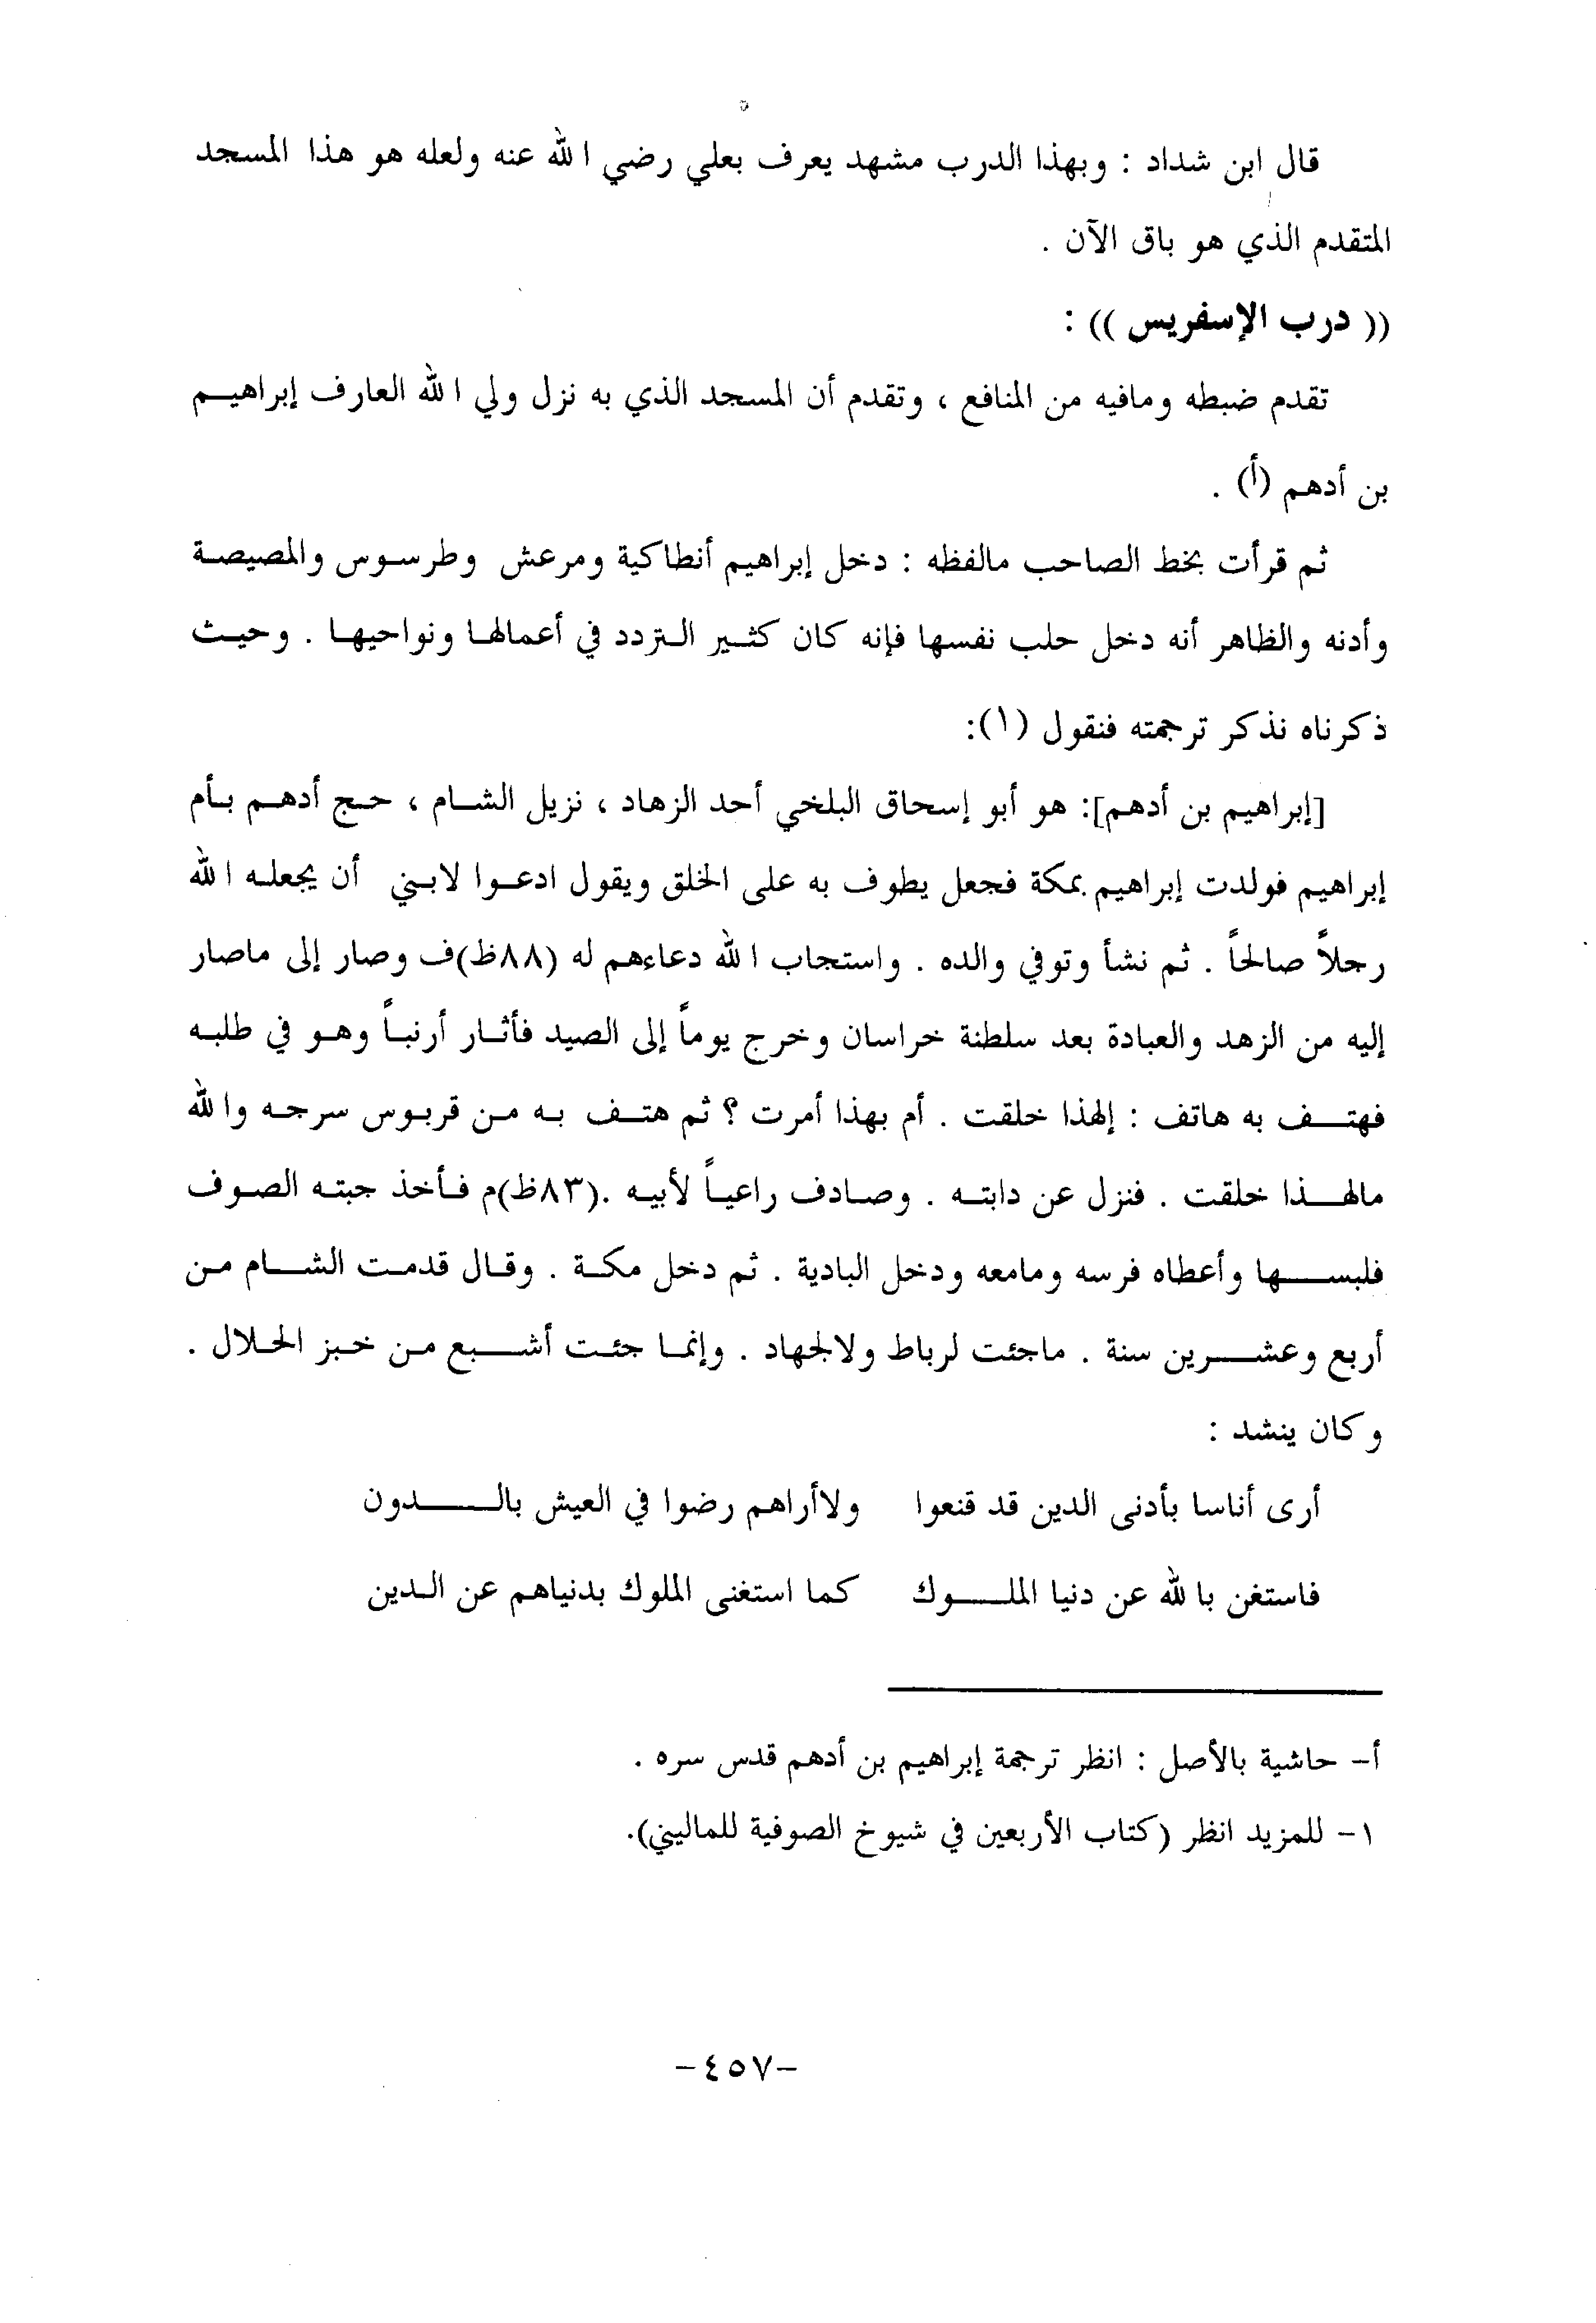 قال ابن شداد : وبهذا الدرب مشهد يعرف بعلي رضي الله عنه ولعله هو هذا المسجد
المتقدم الذي هو باق الآن .
(( درب الإسفريس )) :
تقدم ضبطه ومافيه من المنافع ، وتقدم أن المسجد الذي به نزل ولي الله العارف إبراهيم
بن أدهم (أ) .
ثم قرأت بخط الصاحب مالفظه : دخل إبراهيم أنطاكية ومرعش وطرسوس والمصيصة
وأدنه والظاهر أنه دخل حلب نفسها فإنه كان كثير التردد في أعمالها ونواحيها . وحيث
ذكرناه نذكر ترجمته فنقول (١):
[إبراهيم بن أدهم]: هو أبو إسحاق البلخي أحد الزهاد ، نزيل الشام ، حج أدهم بأم
إبراهيم فولدت إبراهيم بمكة فجعل يطوف به على الخلق ويقول ادعوا لابني أن يجعله الله
رجلاً صالحاً . ثم نشأ وتوفي والده . واستجاب الله دعاءهم له (٨٨ظ)ف وصار إلى ماصار
إليه من الزهد والعبادة بعد سلطنة خراسان وخرج يوماً إلى الصيد فأثار أرنباً وهو في طلبه
فهتف به هاتف : إلهذا خلقت . أم بهذا أمرت ؟ ثم هتف به من قربوس سرجه والله
مالهذا خلقت . فنزل عن دابته . وصادف راعياً لأبيه .(٨٣ظ)م فأخذ جبته الصوف
فلبسها وأعطاه فرسه ومامعه ودخل البادية . ثم دخل مكة . وقال قدمت الشام من
أربع وعشرين سنة . ماجئت لرباط ولالجهاد . وإنما جئت أشبع من خبز الحلال .
وكان ينشد :
أرى أناسا بأدنى الدين قد قنعوا ولاأراهم رضوا في العيش بالدون
فاستغن بالله عن دنيا الملوك كما استغنى الملوك بدنياهم عن الدين
أ– حاشية بالأصل : انظر ترجمة إبراهيم بن أدهم قدس سره .
١– للمزيد انظر (كتاب الأربعين في شيوخ الصوفية للماليني).
–٤٥٧–